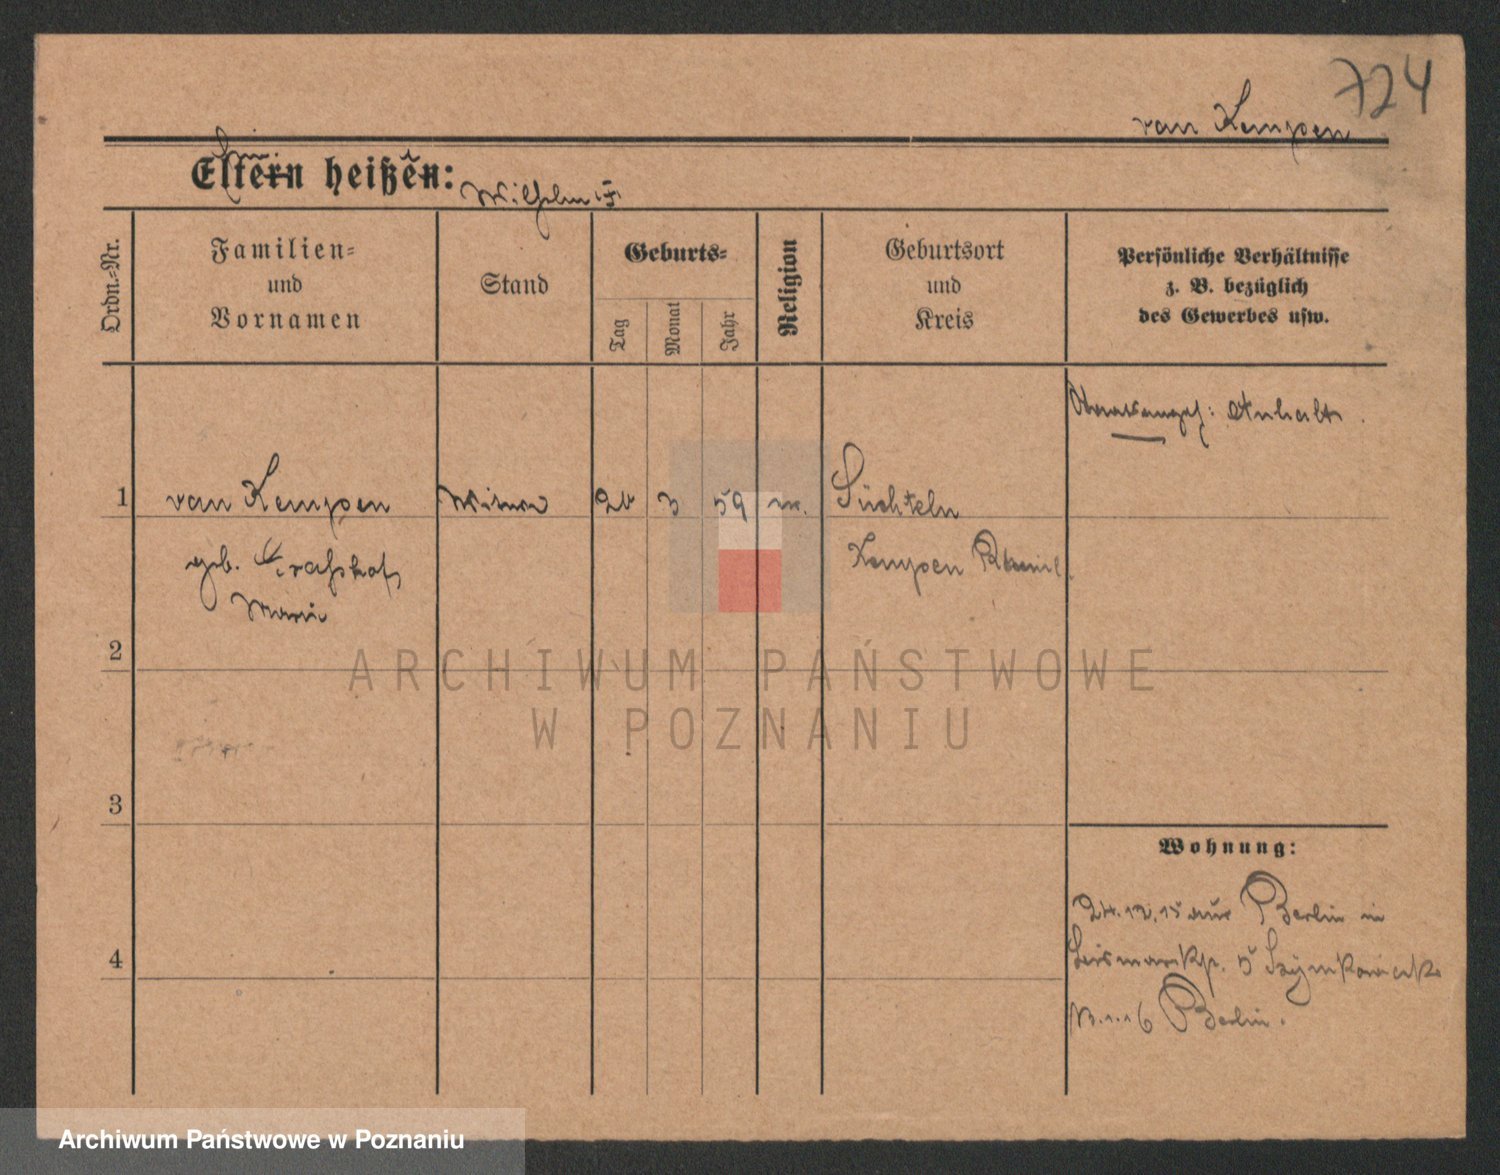 724
van Kempen
Eltern heißen:
Wilhelm
Ordn.-Nr.
Familien-
und
Vornamen
Stand
Geburts-
Tag
Monat
Jahr
Religion
Geburtsort
und
Kreis
Persönliche Verhältnisse
z. B. bezüglich
des Gewerbes usw.
Staatsangeh: Anhalt.
1 van Kempen Witwe 3 59 Süchteln
geb. Graßhof Kempen
Marie
2
ARCHIWUM PAŃSTWOWE
W POZNANIU
3
Wohnung:
24.12.15 aus Berlin in
Bismarckstr. 5
4
Berlin.
Archiwum Państwowe w Poznaniu